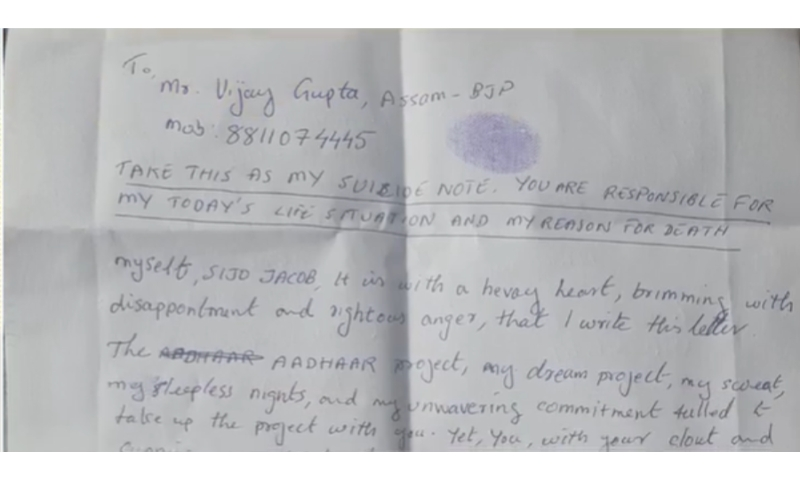 To,
Mr. Vijay Gupta, Assam - BJP
Mob: 8811074445
TAKE THIS AS MY SUICIDE NOTE. YOU ARE RESPONSIBLE FOR
MY TODAY'S LIFE SITUATION AND MY REASON FOR DEATH
myself, SIJO JACOB, It is with a hevay heart, brimming with
disappontment and rightous anger, that I write this letter
The AADHAAR AADHAAR project, my dream project, my sweat,
my sleepless nights, and my unwavering commitment
take up the project with you. Yet, You, with your clout and